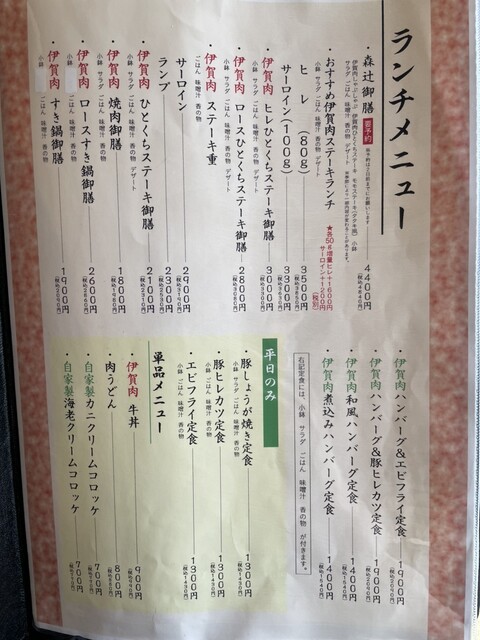 ランチメニュー
・森辻御膳 要予約 4400円
(税込4840円)
・おすすめ伊賀肉ステーキランチ
小鉢 サラダ ごはん 味噌汁 香の物 デザート
★各50g増量ヒレ+1600円
サーロイン+1200円
(税別)
ヒレ(80g) 3500円
(税込3850円)
サーロイン(100g) 3300円
・伊賀肉 ヒレひとくちステーキ御膳 3000円
小鉢 サラダ ごはん 味噌汁 香の物 デザート
・伊賀肉 ロースひとくちステーキ御膳 2800円
(税込3080円)
小鉢 サラダ ごはん 味噌汁 香の物 デザート
・伊賀肉 ステーキ重
ごはん 味噌汁 香の物
サーロイン 2900円
(税込3190円)
ランプ 2300円
・伊賀肉 ひとくちステーキ御膳
小鉢 サラダ ごはん 味噌汁 香の物 デザート
・伊賀肉 焼肉御膳 1800円
(税込1980円)
小鉢 サラダ ごはん 味噌汁 香の物
・伊賀肉 ロースすき鍋御膳 2600円
小鉢 ごはん 味噌汁 香の物
・伊賀肉 すき鍋御膳 1900円
小鉢 ごはん 味噌汁 香の物
・伊賀肉ハンバーグ&エビフライ定食 1900円
(税込2090円)
・伊賀肉ハンバーグ&豚ヒレカツ定食 1900円
(税込2090円)
・伊賀肉和風ハンバーグ定食 1400円
(税込1540円)
・伊賀肉煮込みハンバーグ定食 1400円
(税込1540円)
右記定食には、小鉢 サラダ ごはん 味噌汁 香の物 が付きます。
平日のみ
・豚しょうが焼き定食 1300円
(税込1430円)
小鉢 サラダ ごはん 味噌汁 香の物
・豚ヒレカツ定食 1300円
(税込1430円)
小鉢 サラダ ごはん 味噌汁 香の物
・エビフライ定食 1300円
(税込1430円)
小鉢 ごはん 味噌汁 香の物
単品メニュー
・伊賀肉 牛丼 900円
(税込990円)
・肉うどん 800円
(税込880円)
・自家製カニクリームコロッケ 700円
(税込770円)
・自家製海老クリームコロッケ 700円
(税込770円)